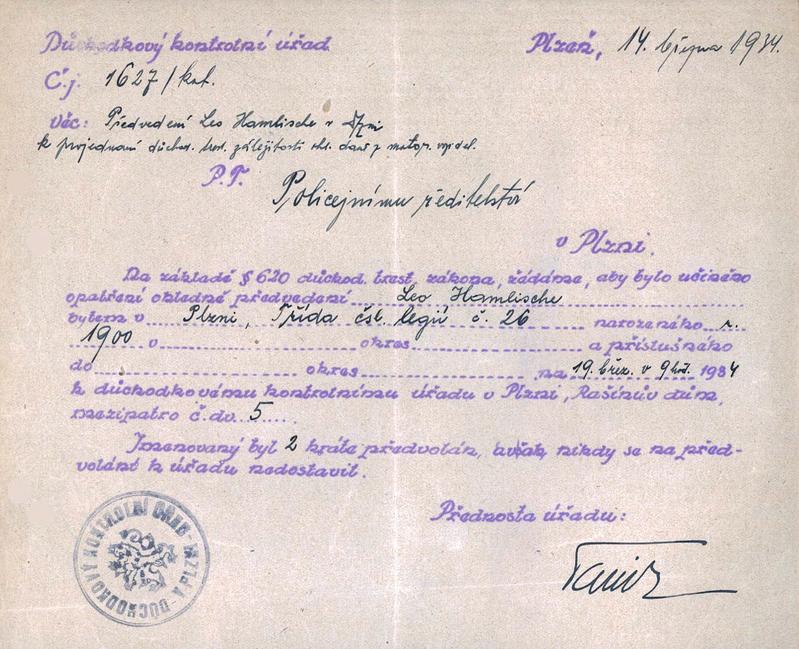 Důchodkový kontrolní úřad
Plzeň, 14. března 1934.
Č.j. 1627/kat.
Věc: Předvedení Leo Hamlische v Plzni
k projednání důchod. trest. záležitosti
P.T.
Policejnímu ředitelství
v Plzni.
Na základě § 620 důchod. trest. zákona, žádáme, aby bylo učiněno
opatření ohledně předvedení Leo Hamlische
bytem v Plzni, Třída čsl. legií č. 26 narozeného r.
1900 v okres a příslušného
do okres na 19. břez. v 9 hod. 1934
k důchodkovému kontrolnímu úřadu v Plzni, Rašínův dům,
mezipatro č. dv. 5
Jmenovaný byl 2 kráte předvolán, avšak nikdy se na před-
volání k úřadu nedostavil.
Přednosta úřadu:
DŮCHODKOVÝ KONTROLNÍ ÚŘAD